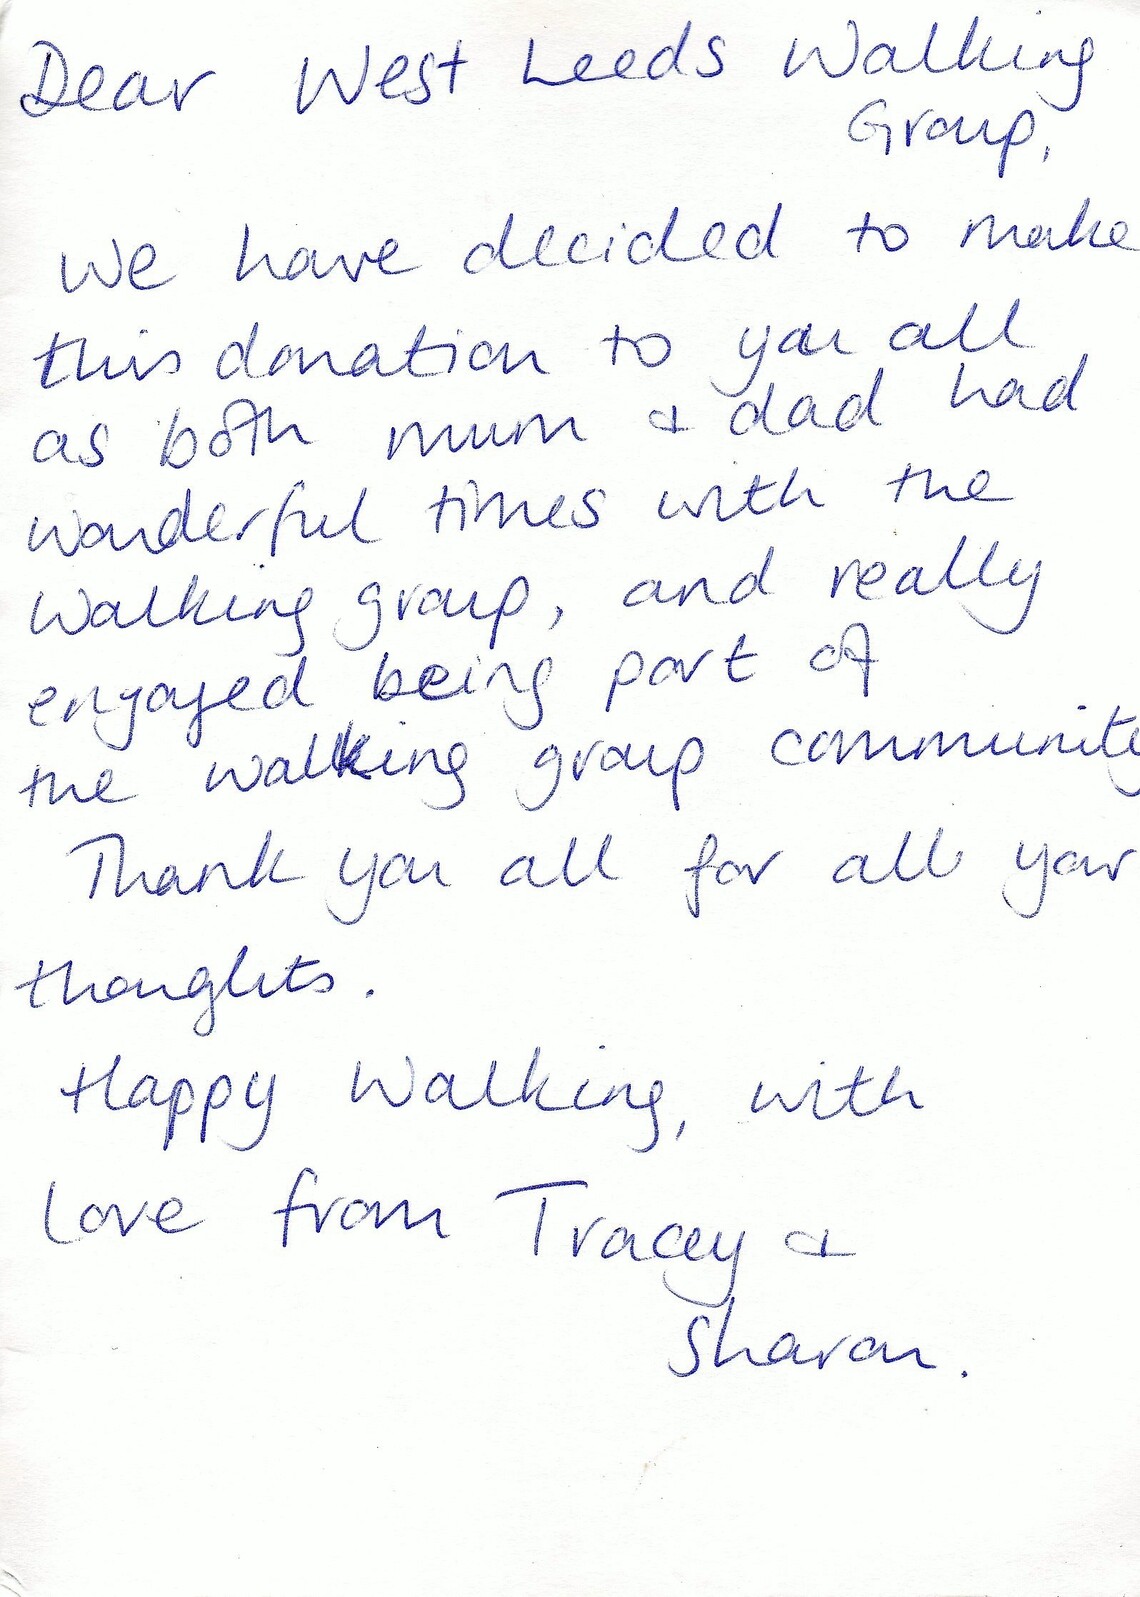 Dear West Leeds Walking
Group,
We have decided to make
this donation to you all
as both mum & dad had
wonderful times with the
walking group, and really
engoyed being part of
the walking group community
Thank you all for all your
thoughts.
Happy Walking, with
love from Tracey &
Sharon.